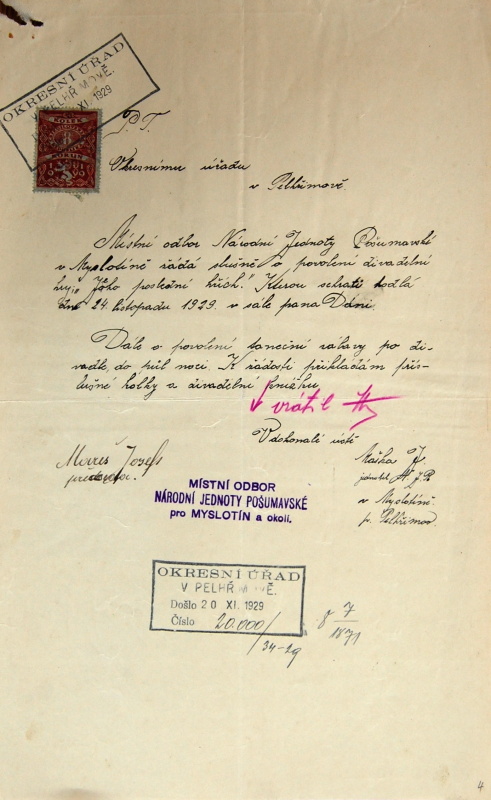 OKRESNÍ ÚŘAD
V PELHŘIMOVĚ.
XI. 1929
KOLEK
P. T.
Okresnímu úřadu
v Pelhřimově
Místní odbor Národní Jednoty Pošumavské
v Myslotíně žádá slušně o povolení divadelní
hry „Jeho poslední hřích". Kterou sehrati hodlá
dne 24. listopadu 1929 v sále pana Dáni.
Dále o povolení taneční zábavy po di-
vadle, do půl noci. K žádosti přikládám přís-
lušné kolky a divadelní knížku.
vrátil
V dokonalé úctě
Mareš Josef
předseda.
Maška J.
jednatel N. J. P.
v Myslotíně
p. Pelhřimov
MÍSTNÍ ODBOR
NÁRODNÍ JEDNOTY POŠUMAVSKÉ
pro MYSLOTÍN a okolí.
OKRESNÍ ÚŘAD
V PELHŘIMOVĚ.
Došlo 20 XI. 1929
Číslo 20.000/
34-29
8 7/1871
4